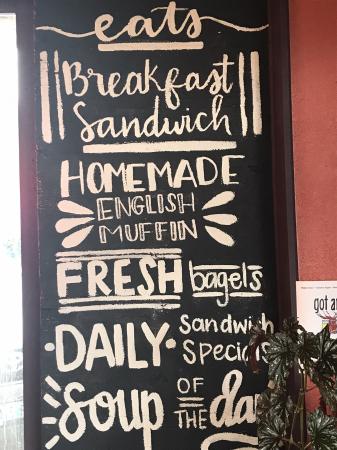 eats
Breakfast
Sandwich
HOMEMADE
ENGLISH
MUFFIN
FRESH bagels
DAILY sandwich
specials
Soup OF THE day
got